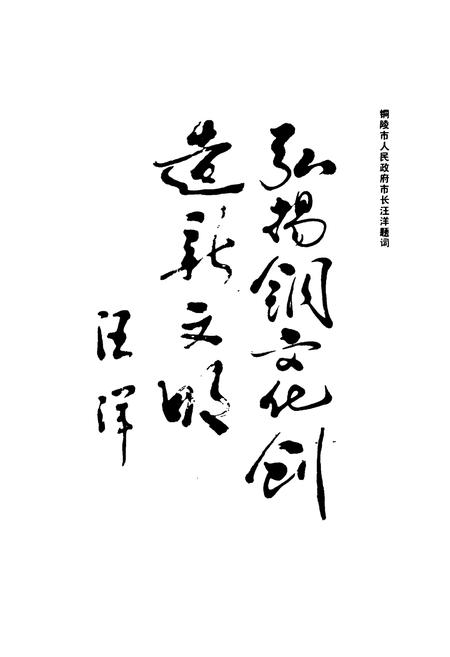 铜陵市人民政府市长汪洋题词
弘扬铜文化创
造新文明
汪洋